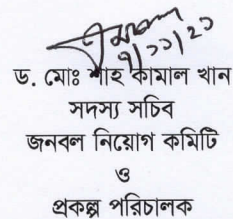 ৭/১১/২০
ড. মোঃ শাহ কামাল খান
সদস্য সচিব
জনবল নিয়োগ কমিটি
ও
প্রকল্প পরিচালক